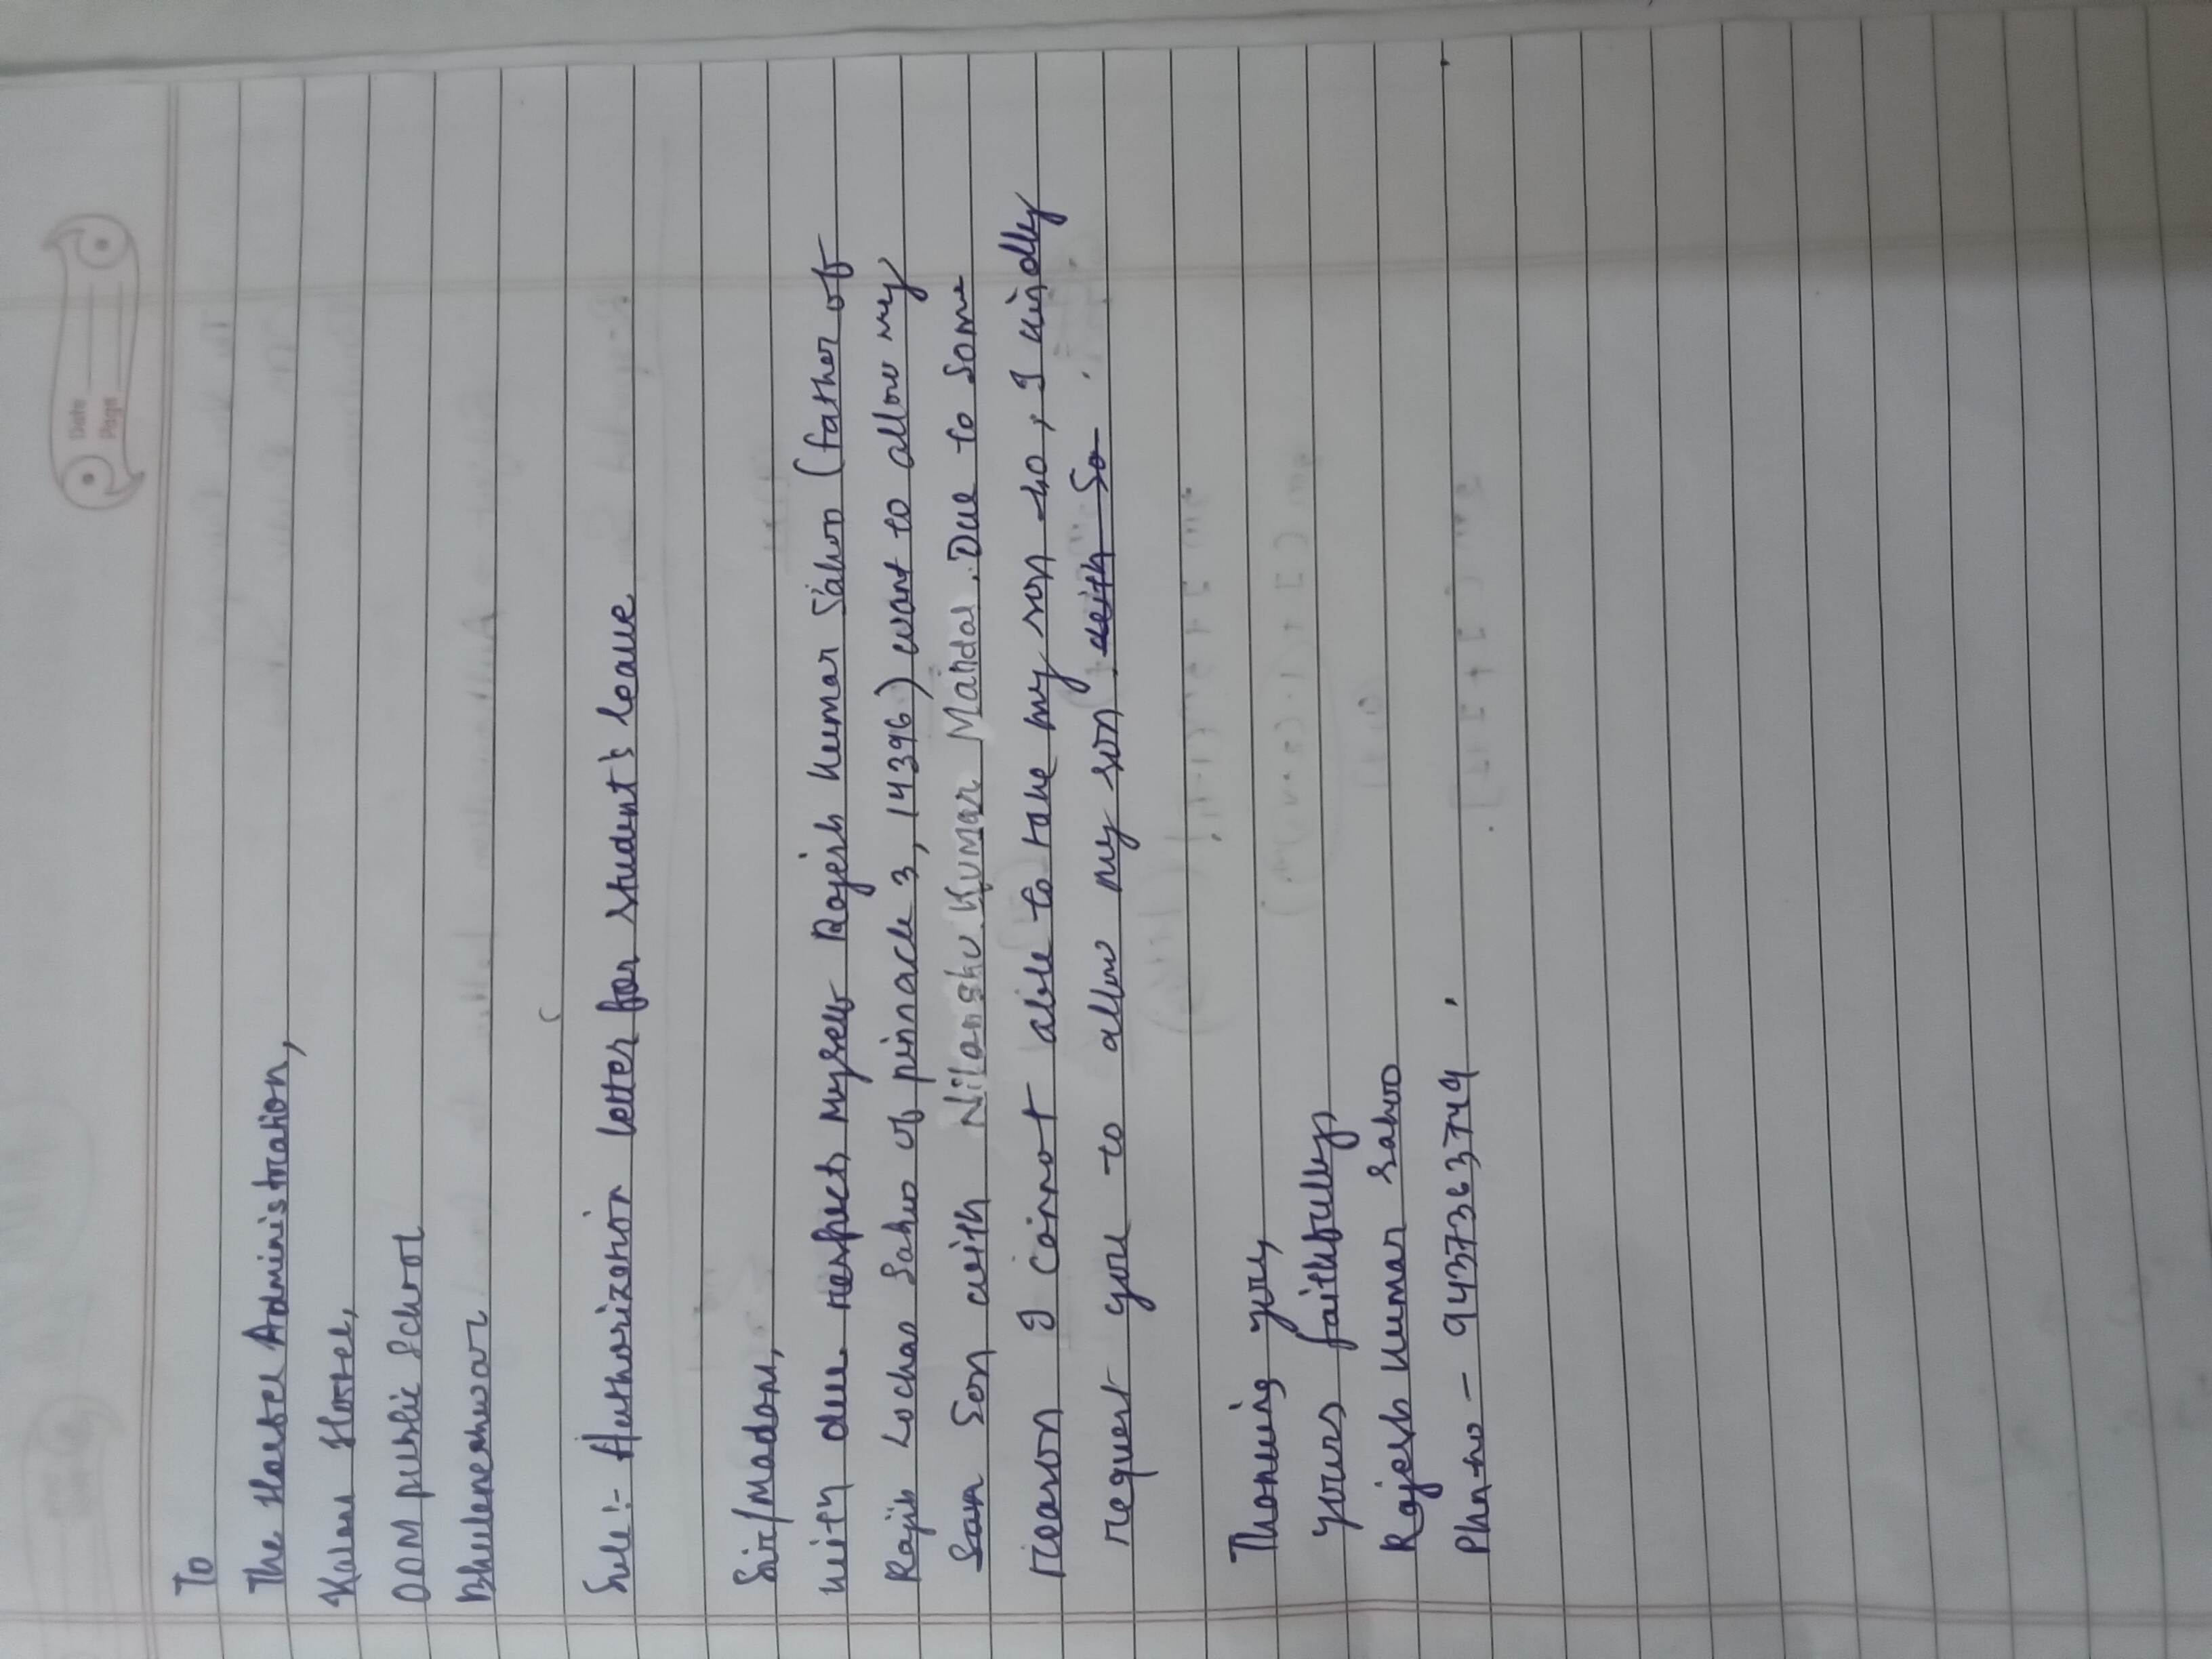 Date
Page
To
The Hostel Administration,
Kalam Hostel,
ODM public School
Bhubaneshwar
Sub:- Authorization letter for student's leave
Sir/Madam,
With due respect, Myself Rajesh Kumar Sahoo (father of
Rajib Lochan Sahoo of pinnacle 3, 14396) want to allow my
Son with Nilanshu Kumar Mandal. Due to some
reason I cannot able to take my son so, I kindly
request you to allow my son. with So
Thanking you,
yours faithfully,
Rajesh Kumar Sahoo
Phn no - 9437363749.